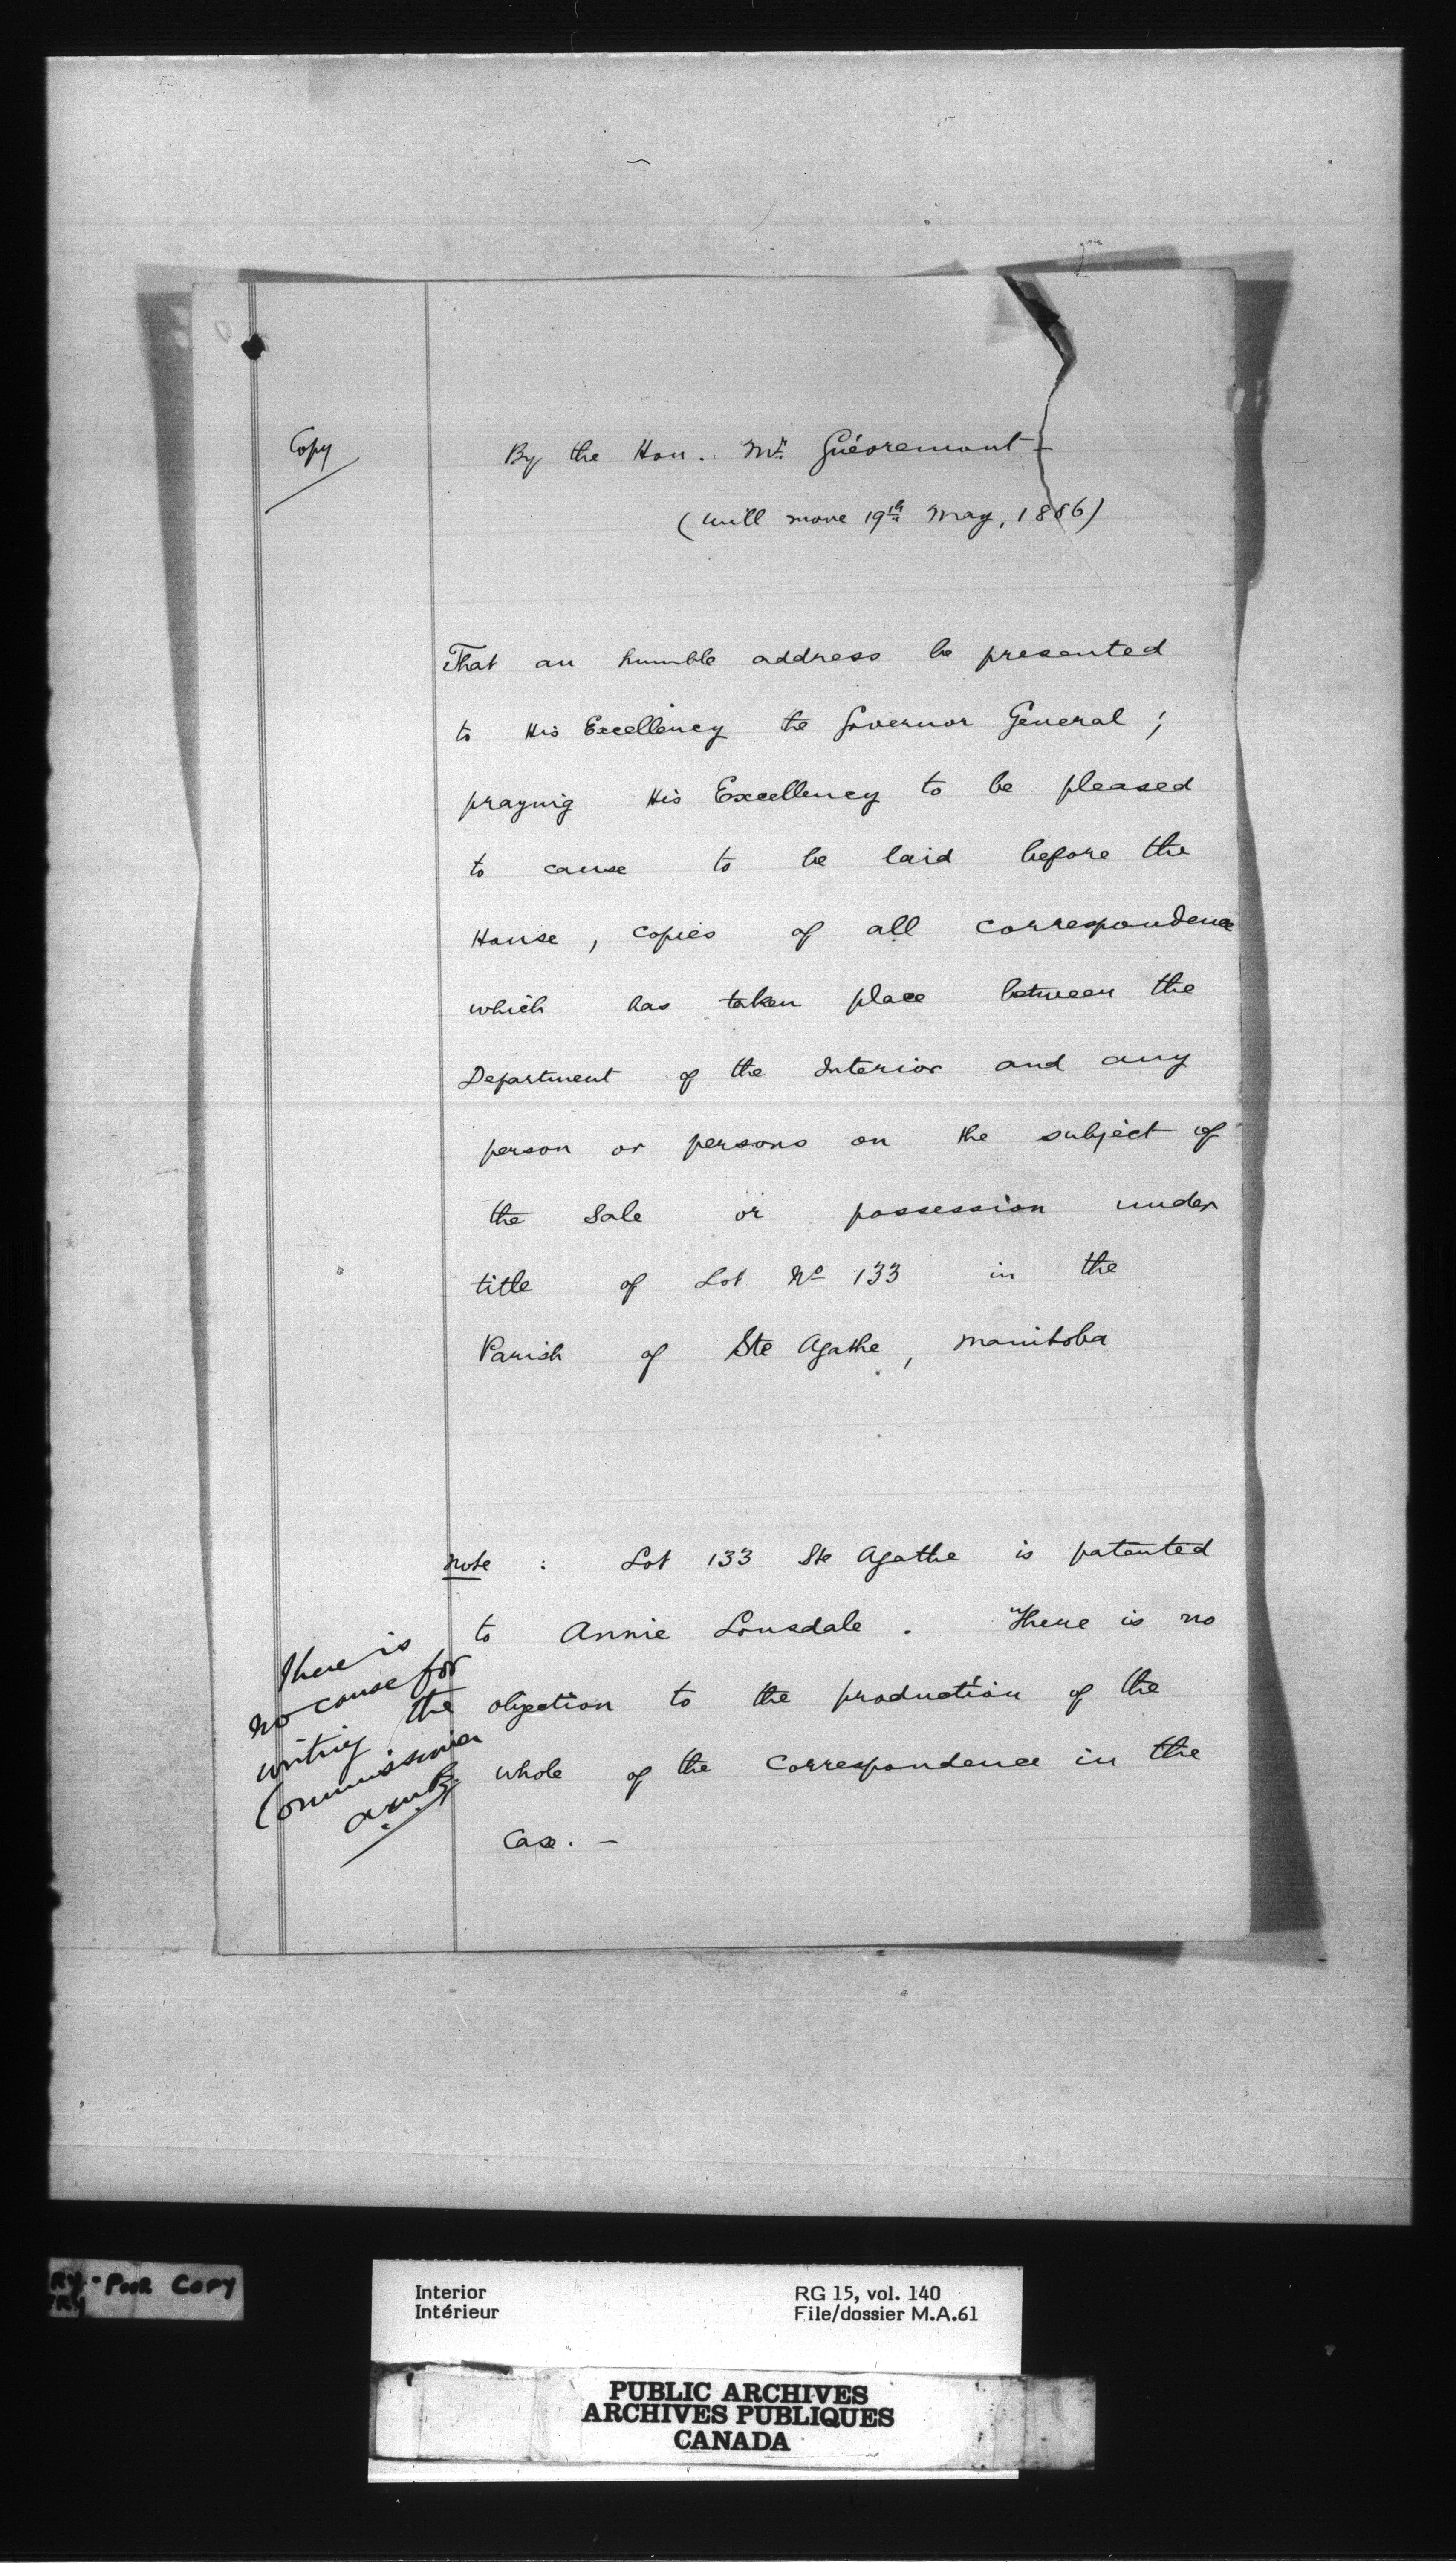 Copy
By the Hon. Mr. Guévremont —
(will move 19th May, 1886)
That an humble address be presented
to His Excellency the Governor General ;
praying His Excellency to be pleased
to cause to be laid before the
House , copies of all correspondence
which has taken place between the
Department of the Interior and any
person or persons on the subject of
the sale or possession under
title of Lot No 133 in the
Parish of Ste Agathe , Manitoba
Note : Lot 133 Ste Agathe is patented
to Annie Lonsdale . There is no
objection to the production of the
whole of the Correspondence in the
Case. —
There is
no cause for
writing the
Commissioner
RY - POOR COPY
Interior
Intérieur
RG 15, vol. 140
File/dossier M.A.61
PUBLIC ARCHIVES
ARCHIVES PUBLIQUES
CANADA